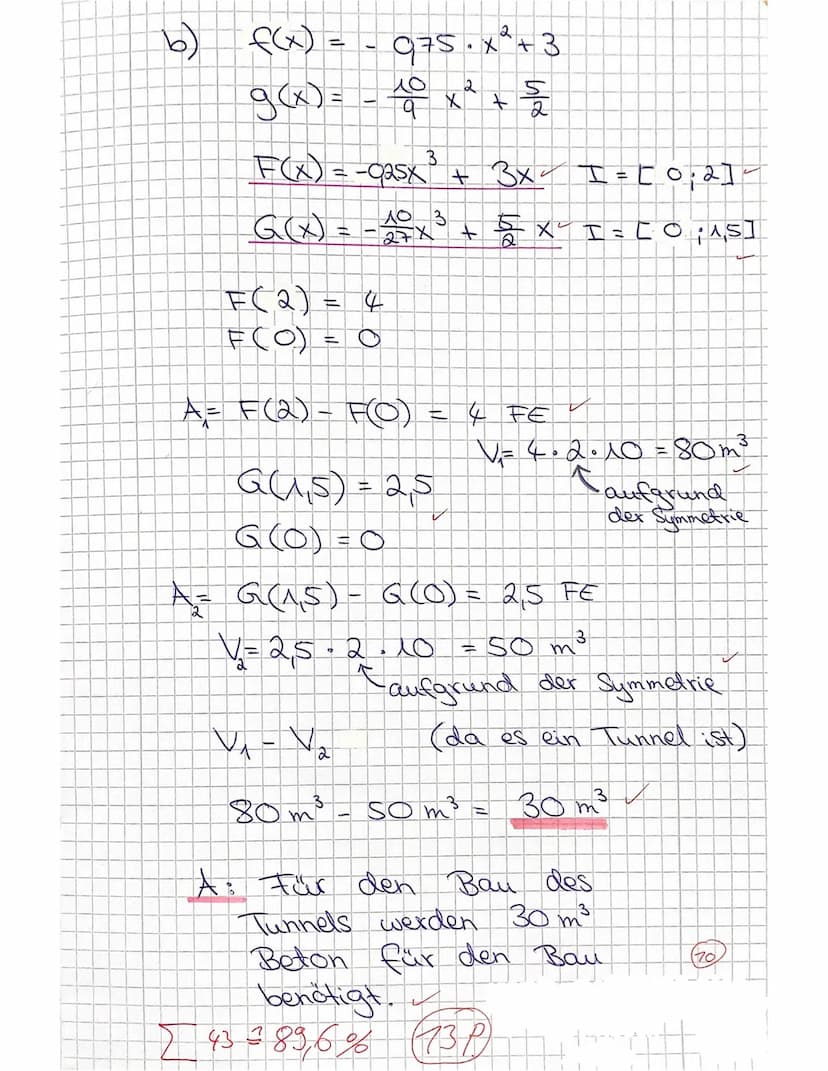 b) f(x) = - 0,75 · x² + 3
g(x) = - 10/9 x² + 5/2
F(x) = -0,25x³ + 3x ✓ I = [ 0 ; 2 ] ✓
G(x) = - 10/27 x³ + 5/2 x ✓ I = [ 0 ; 1,5 ] ✓
F(2) = 4
F(0) = 0
A₁= F(2) - F(0) = 4 FE ✓
V₁= 4 · 2 · 10 = 80 m³ ✓
aufgrund
der Symmetrie
G(1,5) = 2,5 ✓
G(0) = 0
A₂= G(1,5) - G(0) = 2,5 FE
V₂= 2,5 · 2 · 10 = 50 m³ ✓
aufgrund der Symmetrie
V₁ - V₂ (da es ein Tunnel ist)
80 m³ - 50 m³ = 30 m³ ✓
A: Für den Bau des
Tunnels werden 30 m³
Beton für den Bau
benötigt. ✓
10
∑ 43 ≙ 89,6 % 13 P.